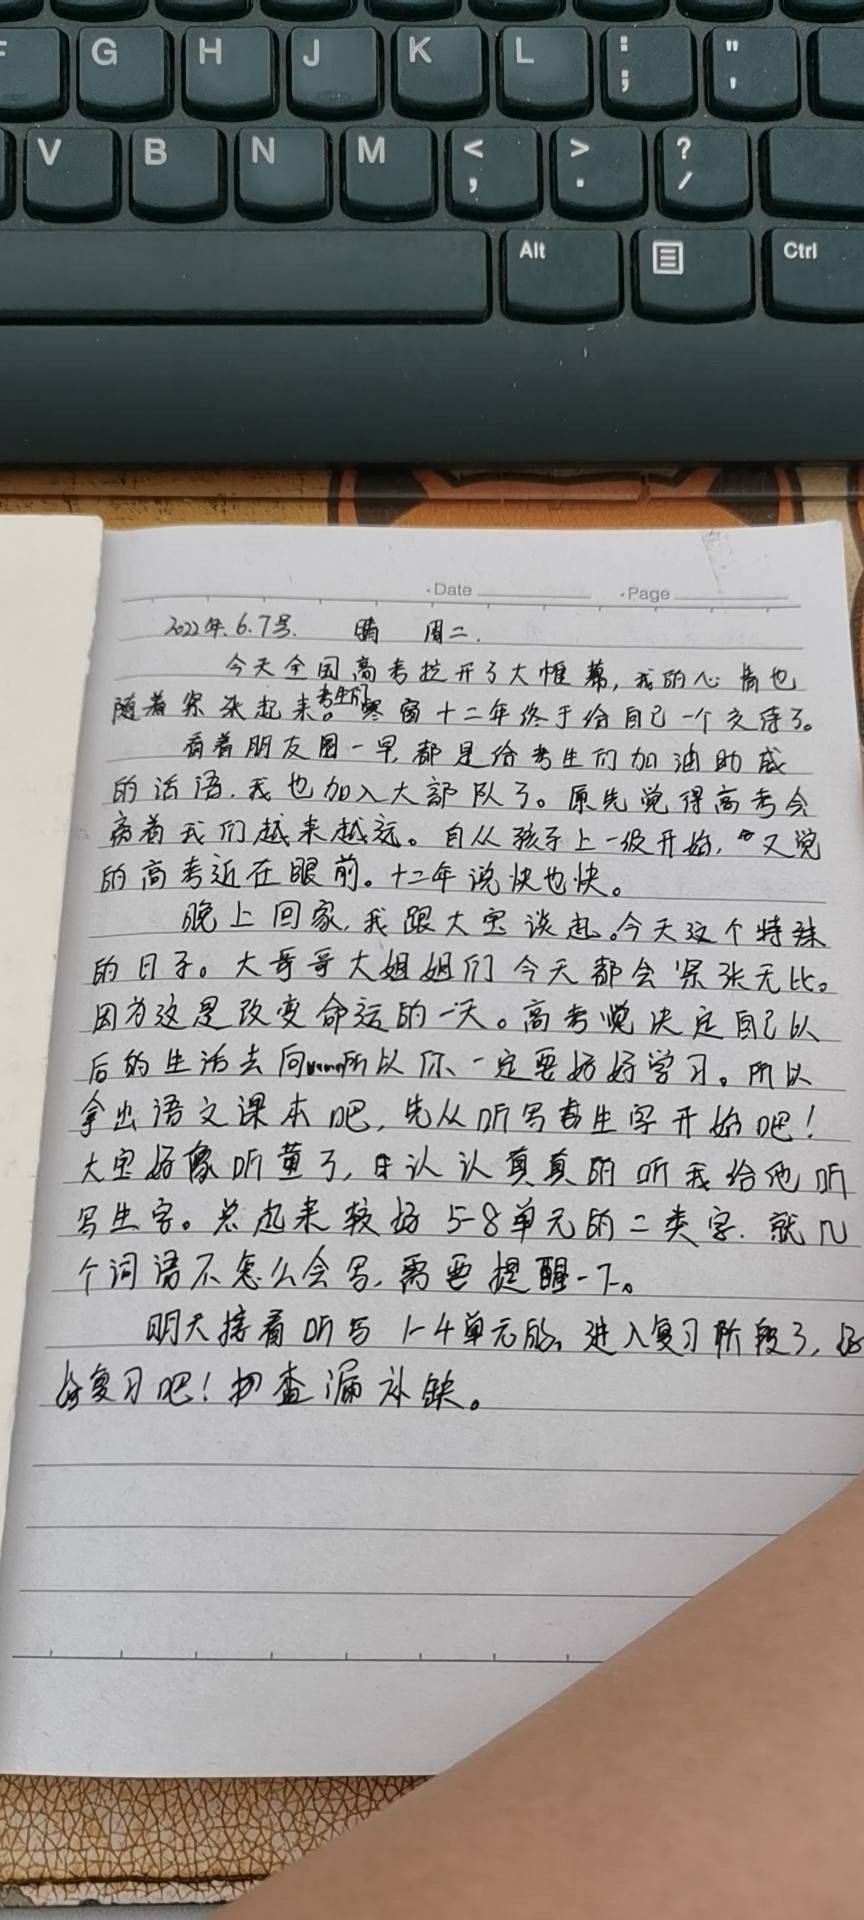 F G H J K L : ; " '
V B N M < , > . ? /
Alt Ctrl
·Date ·Page
2022年.6.7号. 晴 周二.
今天全国高考拉开了大帷幕,我的心情也
随着紧张起来。考生们寒窗十二年终于给自己一个交待了。
看着朋友圈一早都是给考生们加油助威
的话语,我也加入大部队了。原先觉得高考会
离着我们越来越远。自从孩子上一级开始,又觉
的高考近在眼前。十二年说快也快。
晚上回家,我跟大宝谈起。今天这个特殊
的日子。大哥哥大姐姐们今天都会紧张无比。
因为这是改变命运的一天。高考决定自己以
后的生活去向所以你一定要好好学习。所以
拿出语文课本吧,先从听写生字开始吧!
大宝好像听董了,认认真真的听我给他听
写生字。总起来较好5-8单元的二类字.就几
个词语不怎么会写,需要提醒一下。
明天接着听写1-4单元的,进入复习阶段了,好
好复习吧!查漏补缺。